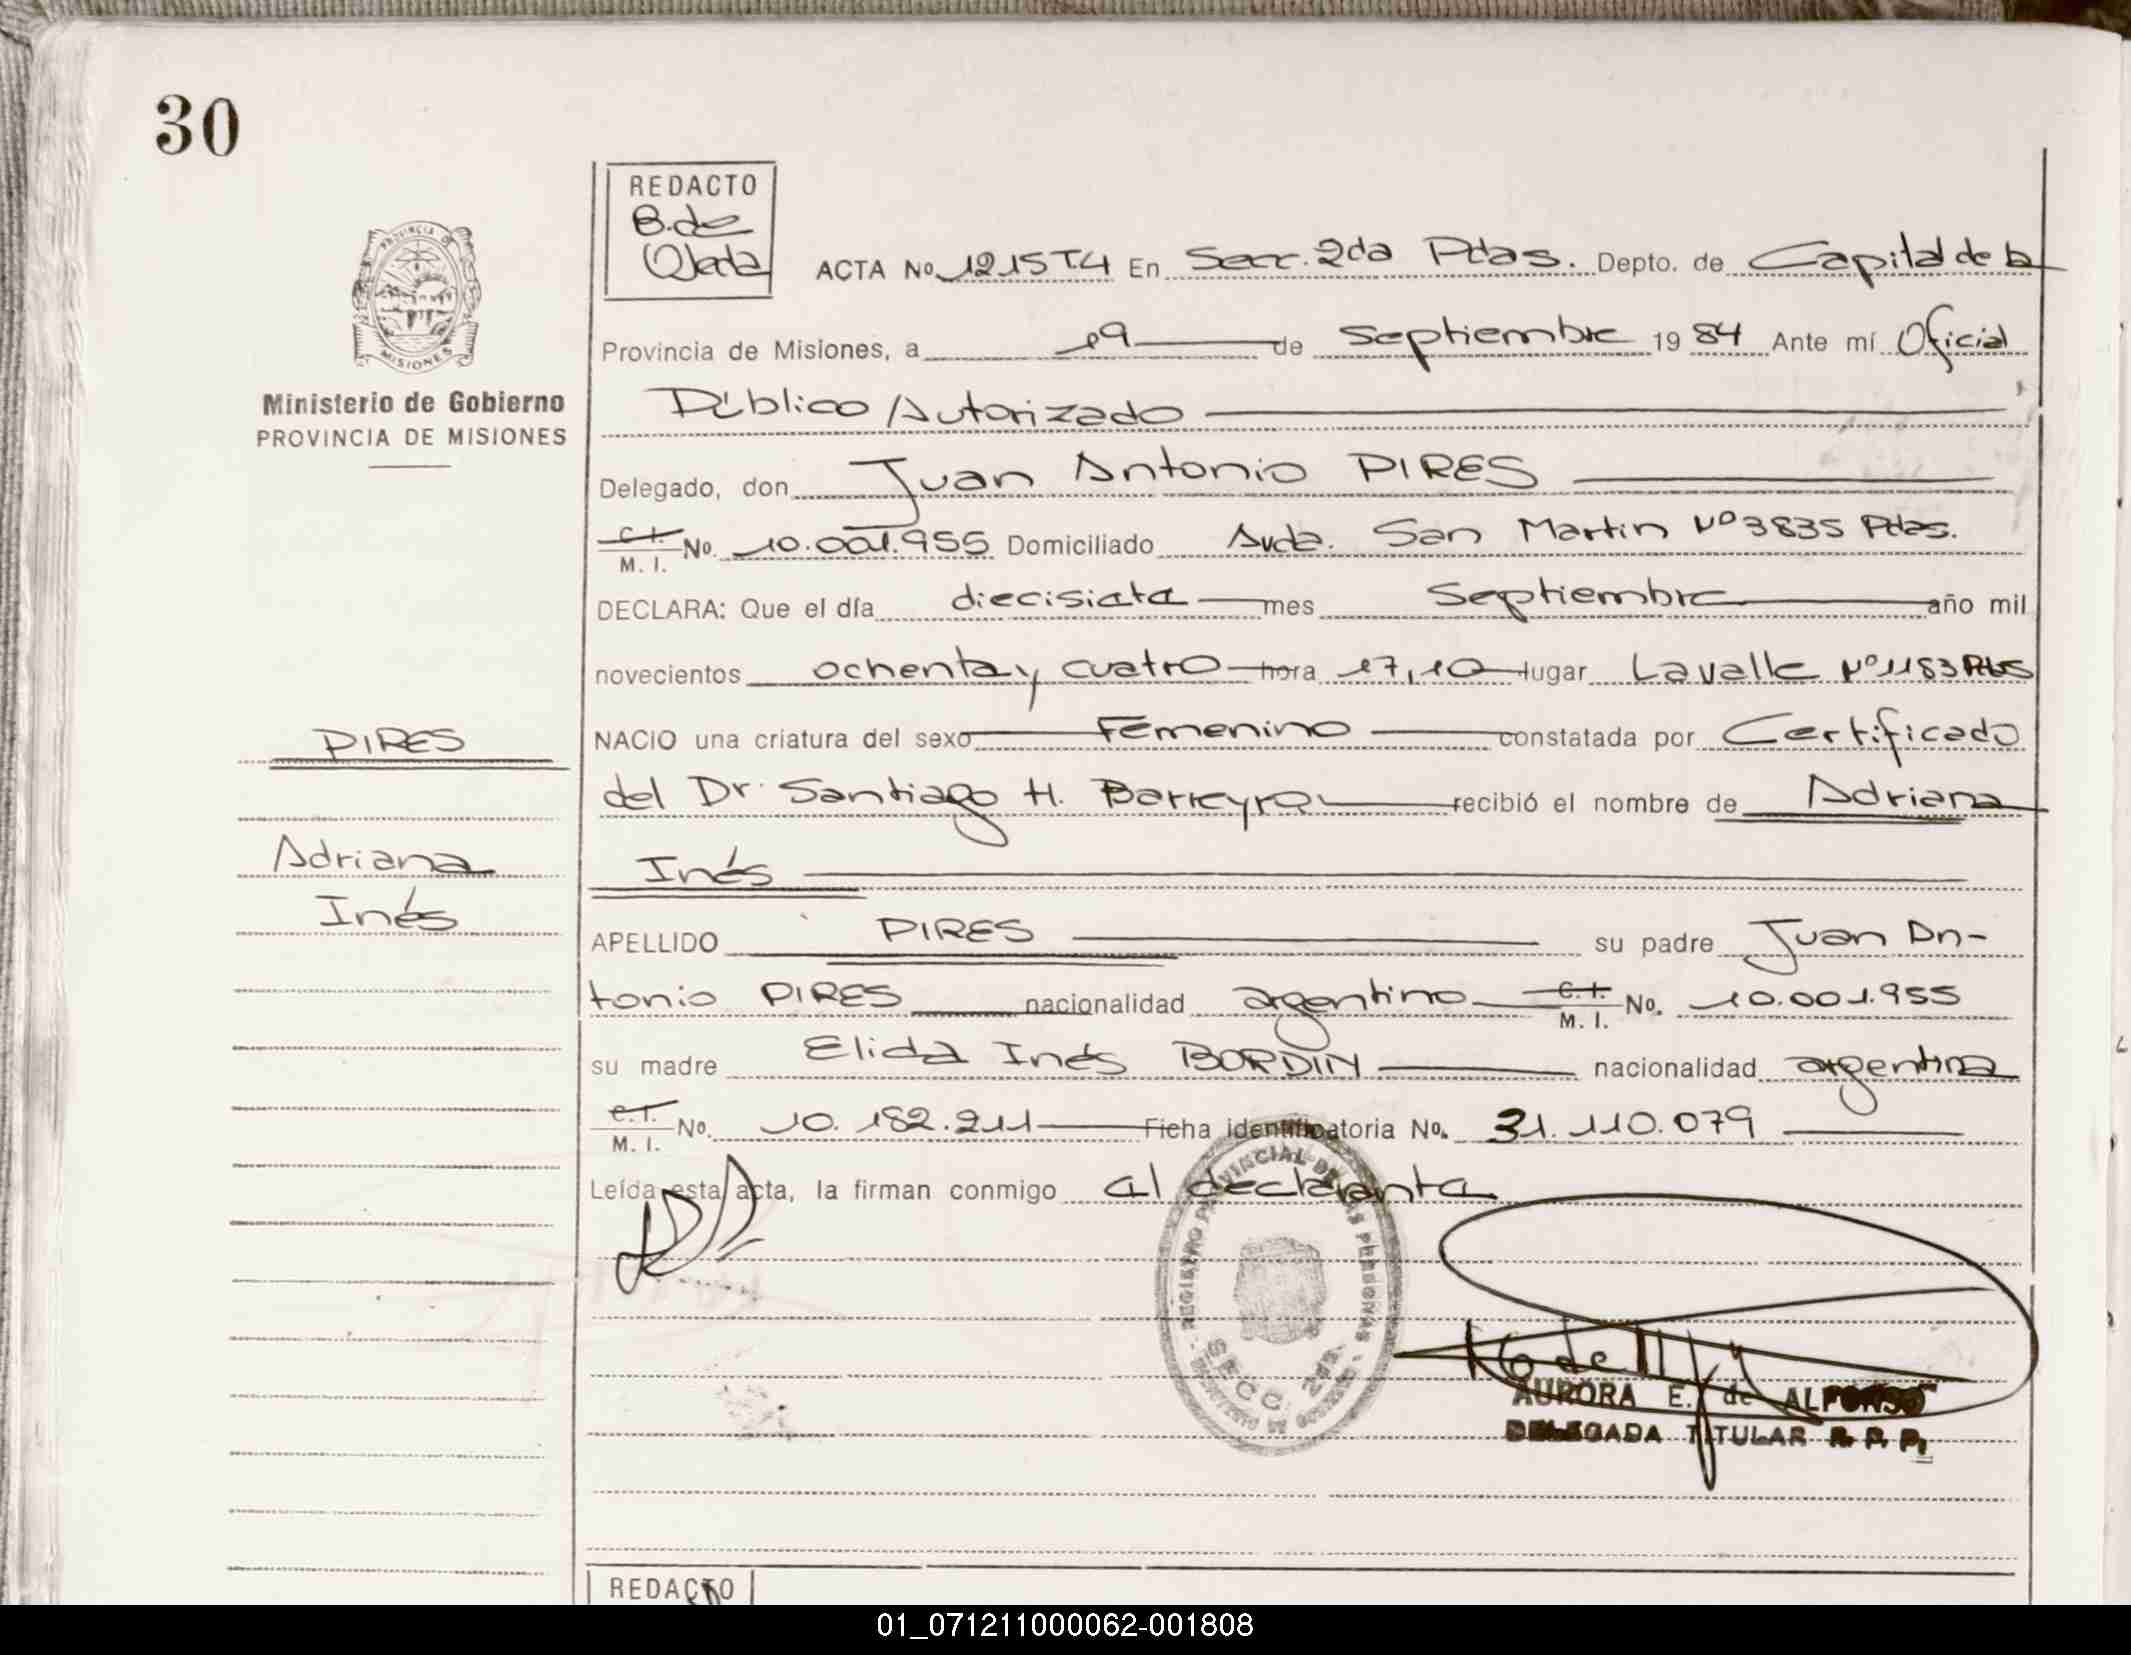 30
PROVINCIA DE
MISIONES
Ministerio de Gobierno
PROVINCIA DE MISIONES
PIRES
Adriana
Inés
REDACTO
B. de
Ojeda
ACTA No 1215 T4 En Secc. 2da Pdas. Depto. de Capital de la
Provincia de Misiones, a 19 de Septiembre 1984 Ante mí Oficial
Público Autorizado
Delegado, don Juan Antonio PIRES
C. I. M. I. No. 10.001.955 Domiciliado Avda. San Martin Nº 3835 Pdas.
DECLARA: Que el día diecisiete mes Septiembre año mil
novecientos ochenta y cuatro hora 17,10 lugar Lavalle Nº 1183 Pdas
NACIO una criatura del sexo Femenino constatada por Certificado
del Dr. Santiago H. Barreyro recibió el nombre de Adriana
Inés
APELLIDO PIRES su padre Juan An-
tonio PIRES nacionalidad argentino C. I. M. I. No. 10.001.955
su madre Elida Inés BORDIN nacionalidad argentina
C. I. M. I. No. 10.182.211 Ficha identificatoria No. 31.110.079
Leída esta acta, la firman conmigo el declarante
REGISTRO PROVINCIAL DE LAS PERSONAS
SECC. 2da.
AURORA E. de ALFONSO
DELEGADA TITULAR R. P. P.
REDACTO
01_071211000062-001808